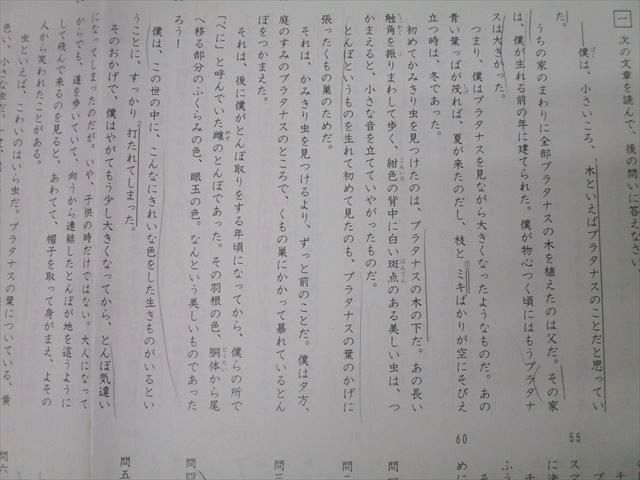 一　次の文章を読んで、後の問いに答えなさい。
僕は、小さいころ、木といえばプラタナスのことだと思ってい
た。
うちの家のまわりに全部プラタナスの木を植えたのは父だ。その家
は、僕が生れる前の年に建てられた。僕が物心つく頃にはもうプラタナ
スは大きかった。
つまり、僕はプラタナスを見ながら大きくなったようなものだ。あの
青い葉っぱが茂れば、夏が来たのだし、枝と①ミキばかりが空にそびえ
立つ時は、冬であった。
初めてかみきり虫を見つけたのは、プラタナスの木の下だ。あの長い
触角を振りまわして歩く、紺色の背中に白い斑点のある美しい虫は、つ
かまえると、小さな音を立てていやがったものだ。
とんぼというものを生れて初めて見たのも、プラタナスの葉のかげに
張ったくもの巣のためだ。
それは、かみきり虫を見つけるより、ずっと前のことだ。僕は夕方、
庭のすみのプラタナスのところで、くもの巣にかかって暴れているとん
ぼをつかまえた。
それは、後に僕がとんぼ取りをする年頃になってから、僕らの所で
「べに」と呼んでいた雌のとんぼであった。その羽根の色、胴体から尾
へ移る部分のふくらみの色、眼玉の色。なんという美しいものであった
ろう！
僕は、この世の中に、こんなにきれいな色をした生きものがいるとい
うことに、すっかり打たれてしまった。
そのおかげで、僕はやがてもう少し大きくなってから、とんぼ気違い
になってしまったのだが、いや、子供の時だけではない。大人になって
からでも、道を歩いていて、向うから連結したとんぼが地を這うように
して飛んで来るのを見ると、あわてて、帽子を取って身がまえ、よその
人から笑われたことがある。
虫といえば、こわいのはいら虫だ。プラタナスの葉についている、黄
色い、小さな虫だ。
55
60
問一
問二
問三
問四
問五
問六